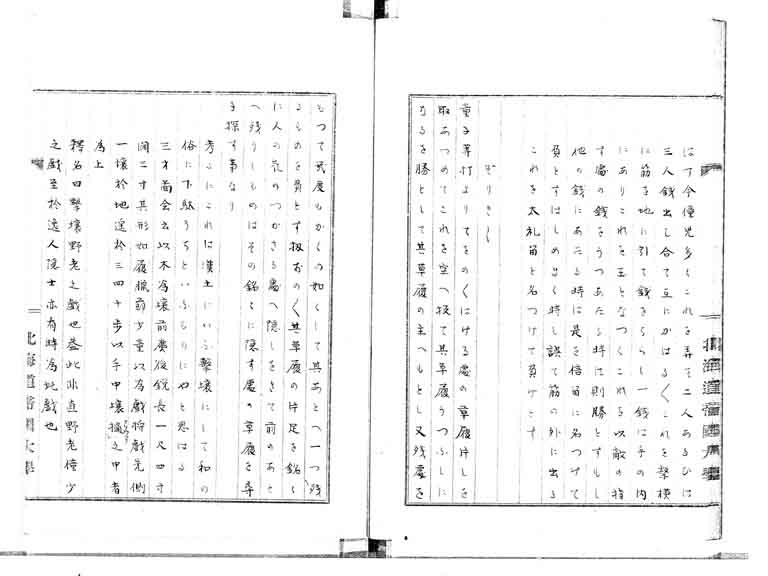 は丁今僮児多くこれを弄そ二人あるひは
三人銭出し合て互にかはる〱これを撃横
に筋を地に引て銭をちらし一銭は手の内
にありこれを玉となつくこれを以敵の指
す處の銭をうつあたる時は則勝とすもし
他の銭にあたる時は是を倍笛に名つけて
負とすはしめ出く時し誤て筋の外に出る
これを大礼笛と名つけて負けとす
ぞりきり
童子等打よりてをのくはける處の草履片しを
取あつめてこれを空へ投て其草履うつふしに
なるを勝として其草履の主へもとし又残處を
もつて幾度もかくの如くして其あとへ一つ残
るものを負とす扨おのく其草履の片足を銘〻
に人の花のつかさる處へ隠しをきて前のあと
へ残りしものはその銘〻に隠す處の草履を尋
ね探す事なり
考ふにこれは漢土にいふ撃壌にして和の
俗に下駄うちといふもりにやと思はる
三才啚会云以木為壌前廣後鋭長一尺四寸
闊三寸其形如履臘節少童以為戯将戯先側
一壌於地遥於三四十歩以手中壌擿之中者
為上
釋名曰撃壌野老之戯也蓋此非直野老僮少
之戯至於逸人隠士亦有時為此戯也
北海道帝国大學
北海道帝國大學